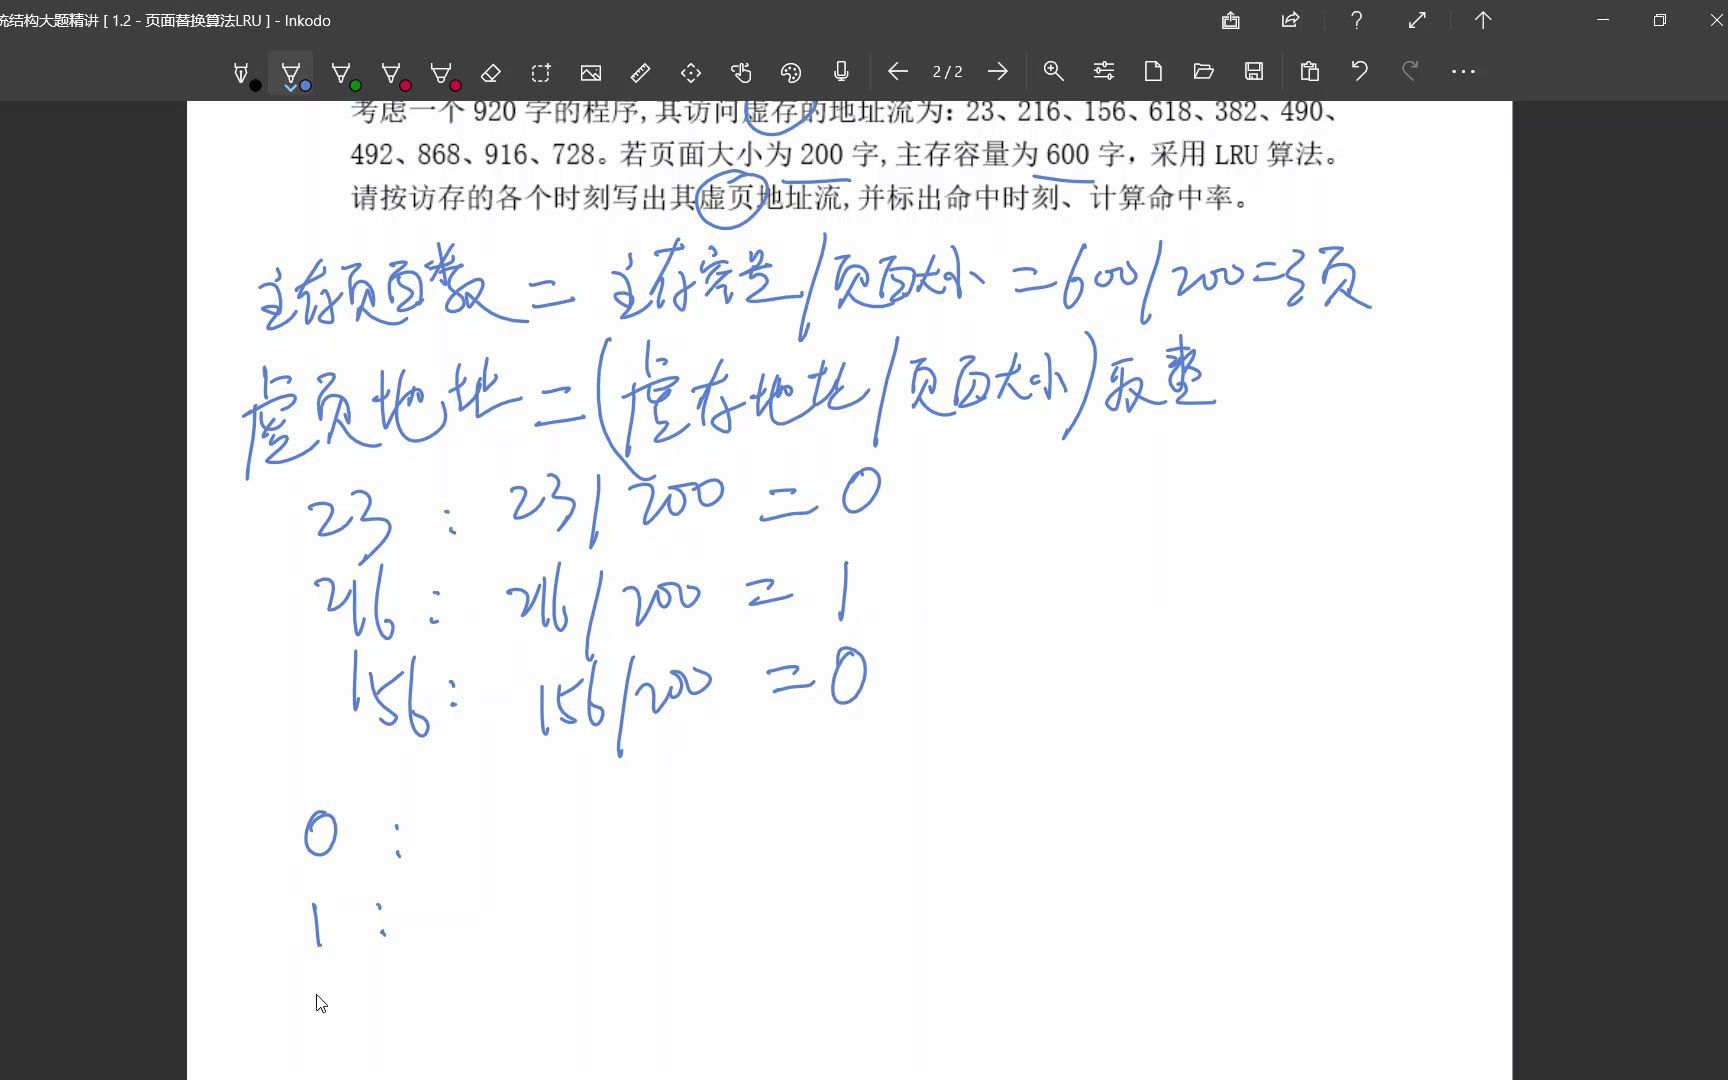 统结构大题精讲 [ 1.2 - 页面替换算法LRU ] - Inkodo
2 / 2
考虑一个 920 字的程序,其访问虚存的地址流为：23、216、156、618、382、490、
492、868、916、728。若页面大小为 200 字,主存容量为 600 字，采用 LRU 算法。
请按访存的各个时刻写出其虚页地址流,并标出命中时刻、计算命中率。
主存页面数 = 主存容量/页面大小 = 600/200 = 3页
虚页地址 = (虚存地址/页面大小)取整
23 : 23/200 = 0
216 : 216/200 = 1
156 : 156/200 = 0
0 :
1 :